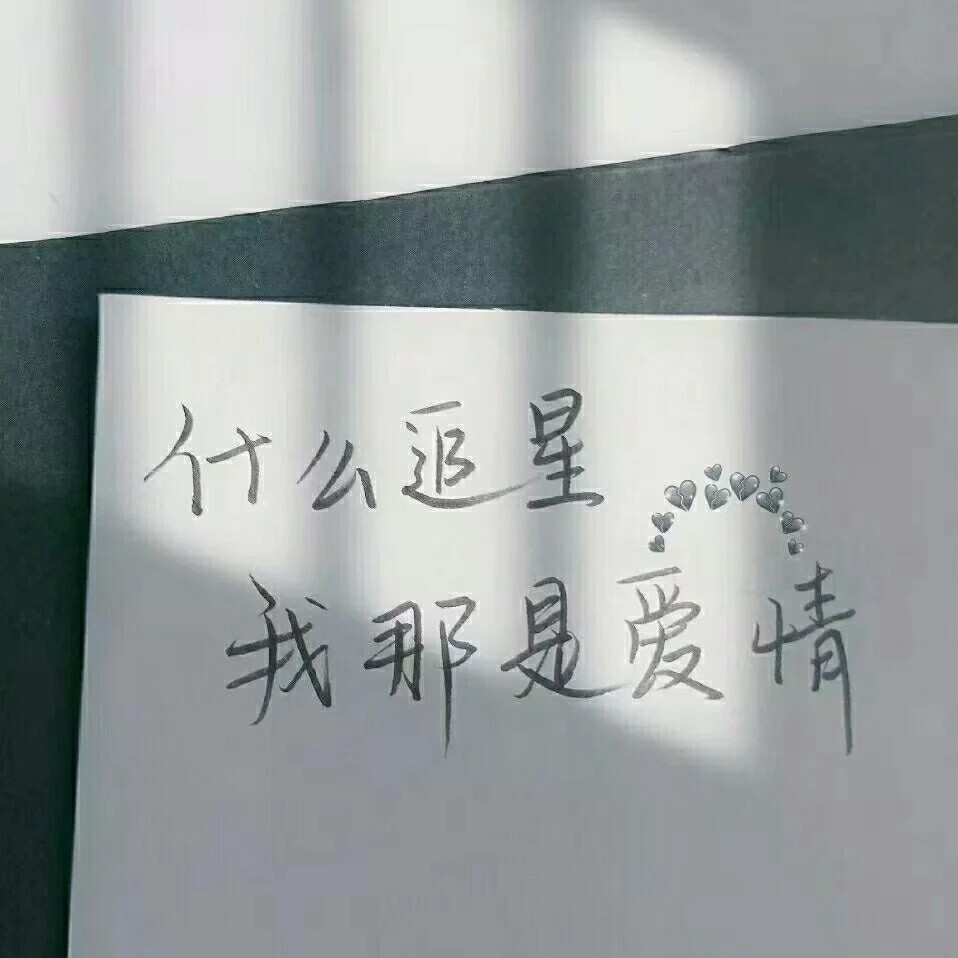 什么追星
我那是爱情